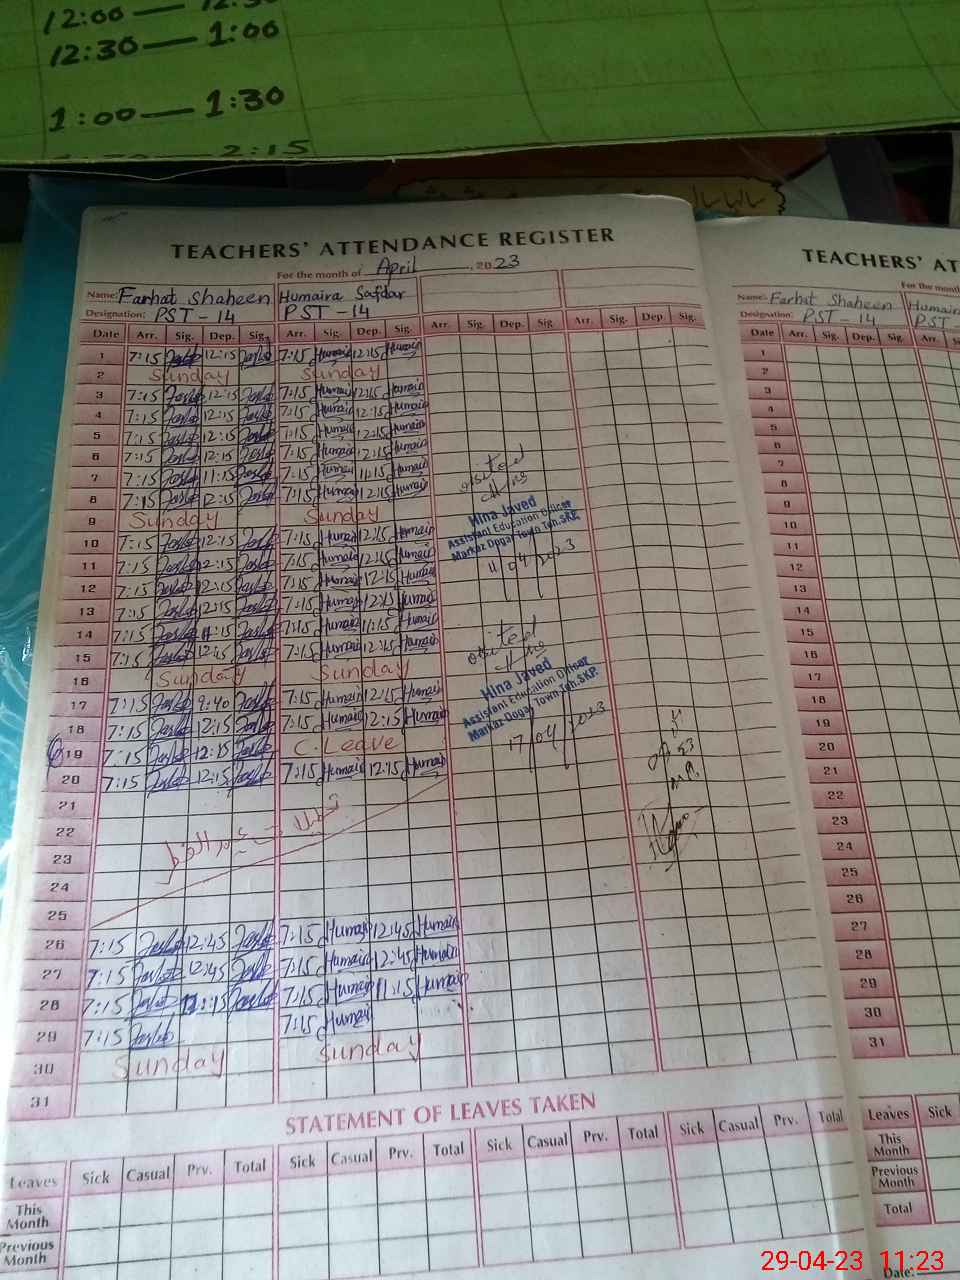 12:00 — 12:30
12:30 — 1:00
1:00 — 1:30
2:15
TEACHERS' ATTENDANCE REGISTER
For the month of April, 2023
Name: Farhat Shaheen Humaira Safdar
Designation: PST - 14 PST - 14
Date Arr. Sig. Dep. Sig. Arr. Sig. Dep. Sig. Arr. Sig. Dep. Sig Arr. Sig. Dep. Sig.
1 7:15 12:15 7:15 Humair 12:15 Humair
2 Sunday Sunday
3 7:15 12:15 7:15 Humair 12:15 Humair
4 7:15 12:15 7:15 Humair 12:15 Humair
5 7:15 12:15 7:15 Humair 12:15 Humair
6 7:15 12:15 7:15 Humair 12:15 Humair
7 7:15 11:15 7:15 Humair 11:15 Humair
8 7:15 12:15 7:15 Humair 12:15 Humair
9 Sunday Sunday
10 7:15 12:15 7:15 Humair 12:15 Humair
11 7:15 12:15 7:15 Humair 12:15 Humair
12 7:15 12:15 7:15 Humair 12:15 Humair
13 7:15 12:15 7:15 Humair 12:15 Humair
14 7:15 11:15 7:15 Humair 11:15 Humair
15 7:15 12:15 7:15 Humair 12:15 Humair
16 Sunday Sunday
17 7:15 9:40 7:15 Humair 12:15 Humair
18 7:15 12:15 7:15 Humair 12:15 Humair
19 7:15 12:15 C. Leave
20 7:15 12:15 7:15 Humair 12:15 Humair
21
22
23
24
25
26 7:15 12:45 7:15 Humair 12:45 Humair
27 7:15 12:45 7:15 Humair 12:45 Humair
28 7:15 11:15 7:15 Humair 11:15 Humair
29 7:15 7:15 Humair
30 Sunday Sunday
31
تعطیلات عید الفطر
visited
Hina Javed
Assistant Education Officer
Markaz Dogar Town Teh. SKP.
11/04/2023
visited
Hina Javed
Assistant Education Officer
Markaz Dogar Town Teh. SKP.
17/04/2023
STATEMENT OF LEAVES TAKEN
Leaves Sick Casual Prv. Total Sick Casual Prv. Total Sick Casual Prv. Total Sick Casual Prv. Total
This Month
Previous Month
TEACHERS' AT
For the month
Name:- Farhat Shaheen Humaira
Designation: PST - 14 PST -
Date Arr. Sig. Dep. Sig. Arr. S
1
2
3
4
5
6
7
8
9
10
11
12
13
14
15
16
17
18
19
20
21
22
23
24
25
26
27
28
29
30
31
Leaves Sick
This Month
Previous Month
Total
Date:
29-04-23 11:23